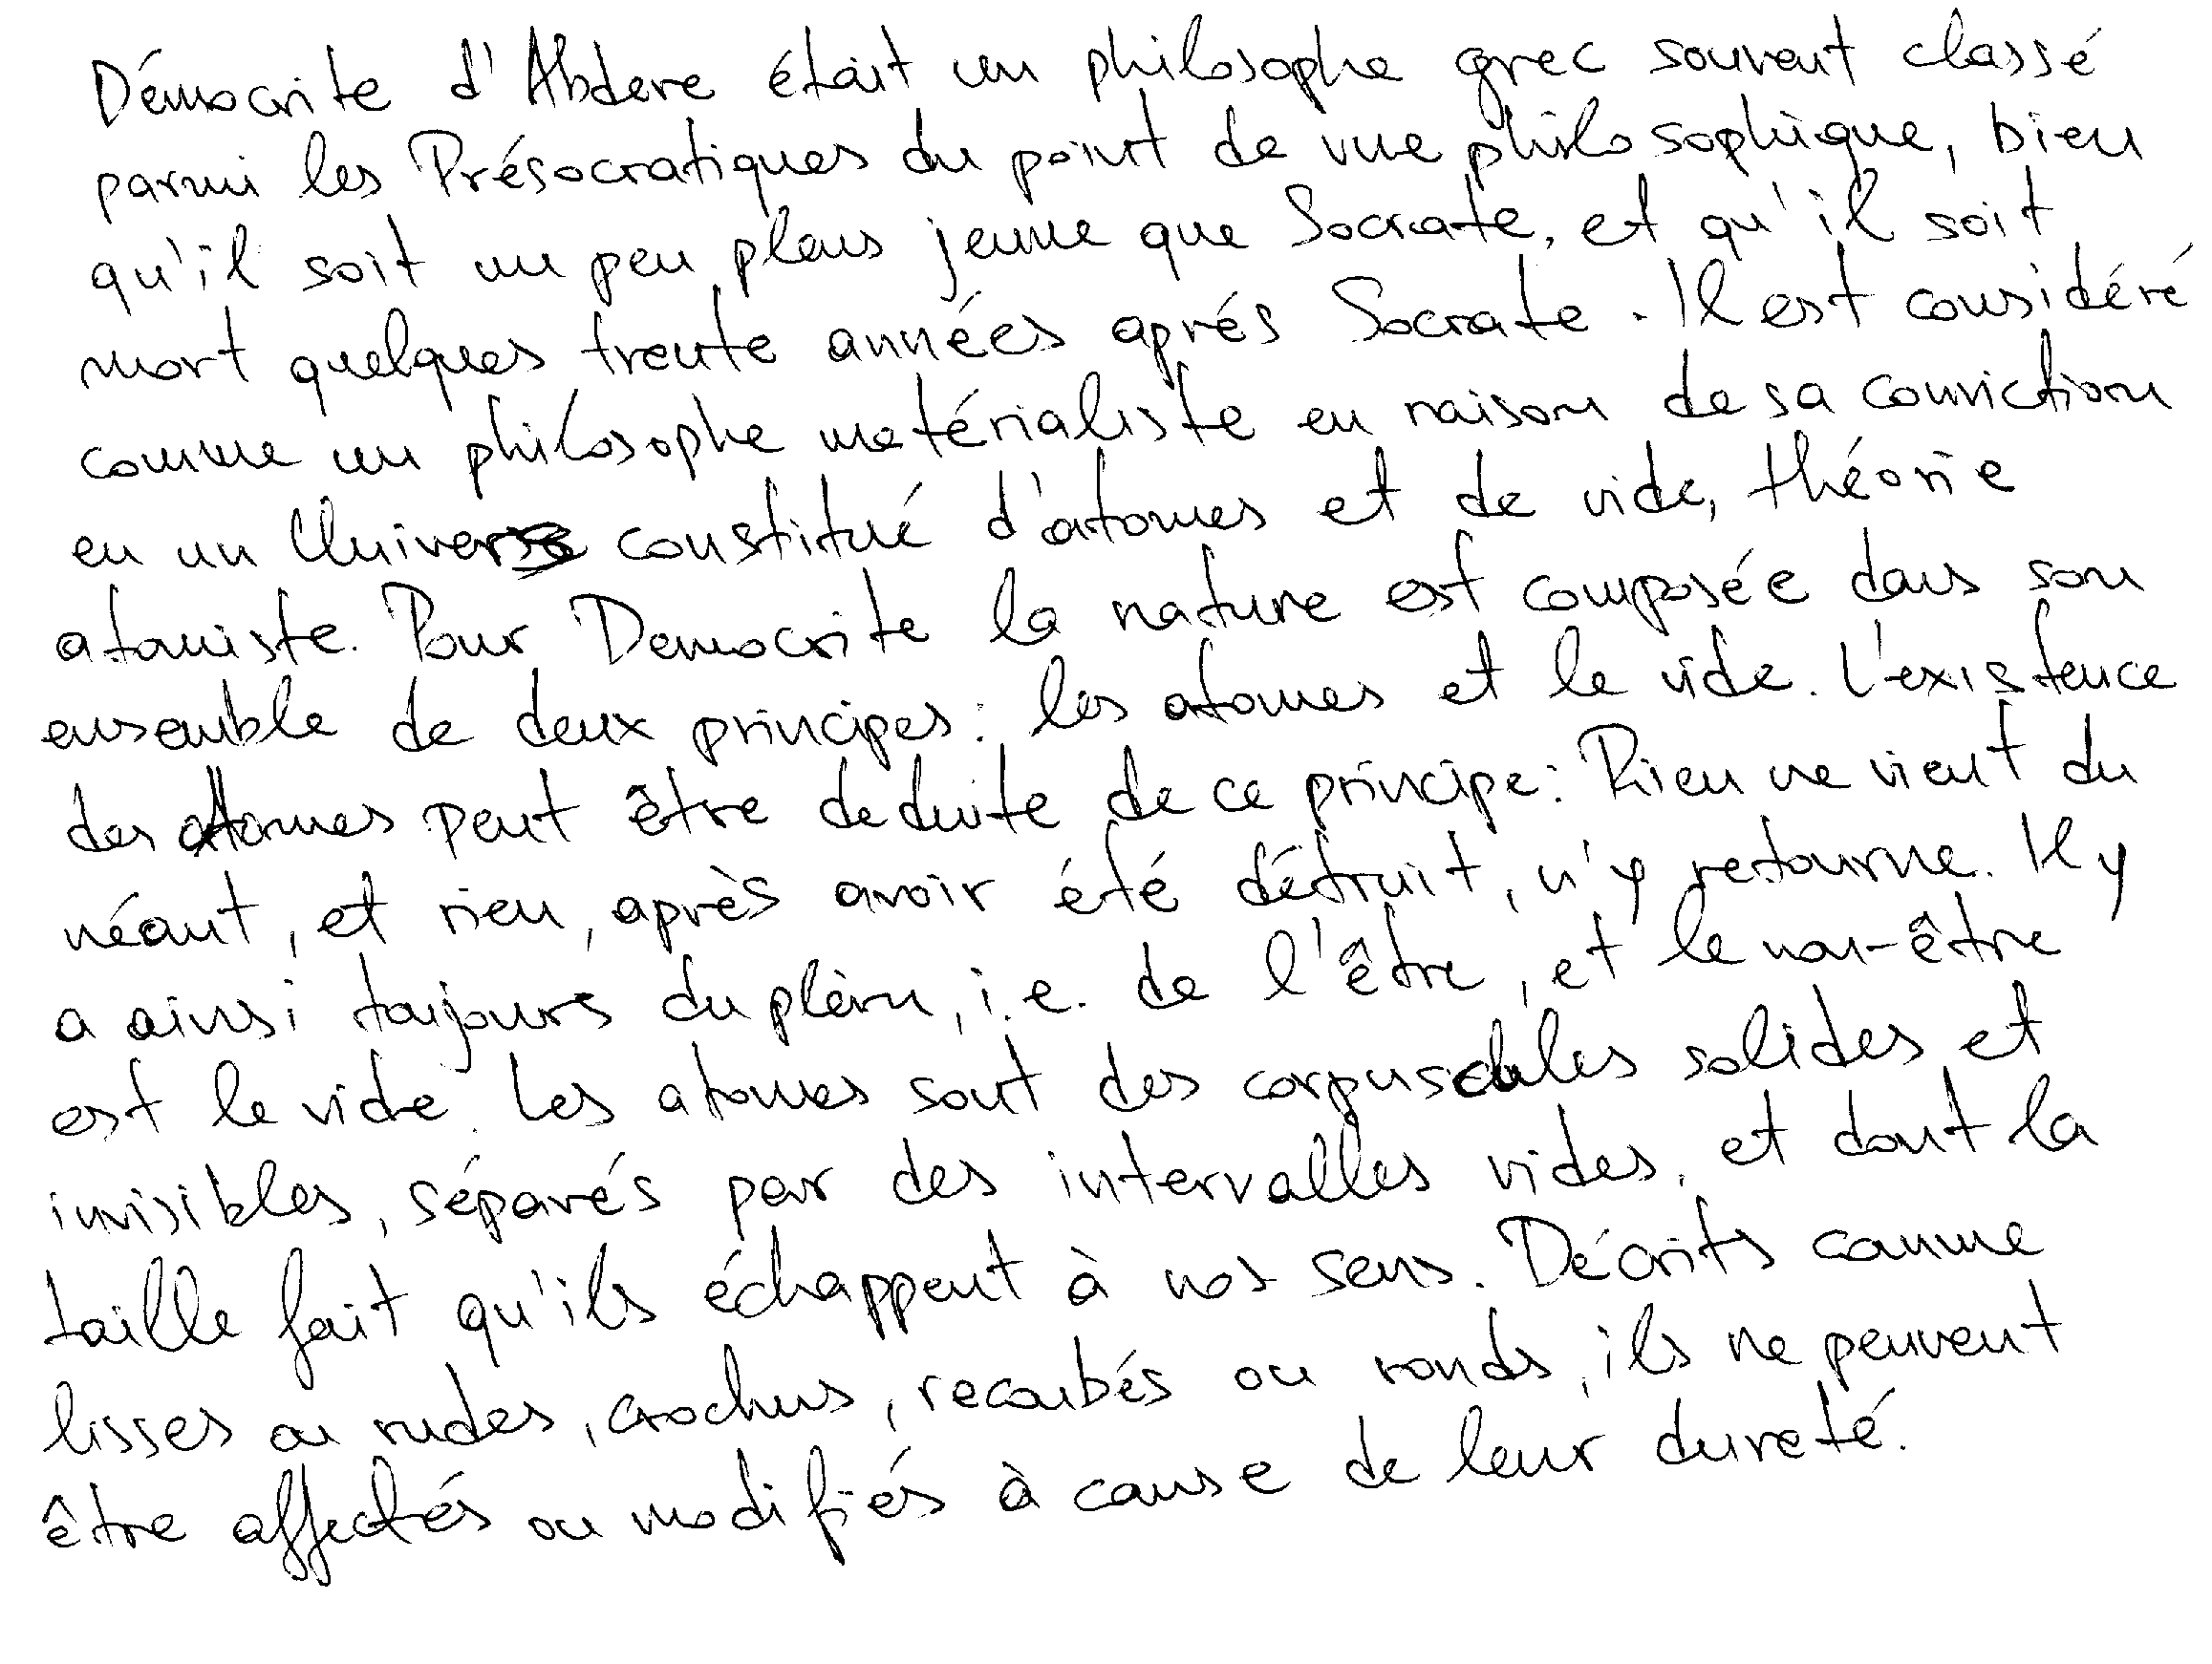 Démocrite d'Abdere était un philosophe grec souvent classé
parmi les Présocratiques du point de vue philosophique, bien
qu'il soit un peu plus jeune que Socrate, et qu'il soit
mort quelques trente années aprés Socrate. Il est considéré
comme un philosophe matérialiste en raison de sa conviction
en un Univers constitué d'atomes et de vide, théorie
atomiste. Pour Democrite la nature est composée dans son
ensemble de deux principes: les atomes et le vide. L'existence
des atomes peut être deduite de ce principe: Rien ne vient du
néant, et rien, après avoir été détruit, n'y retourne. Il y
a ainsi toujours du plein, i.e. de l'être, et le non-être
est le vide. Les atomes sont des corpuscules solides et
invisibles, séparés par des intervalles vides, et dont la
taille fait qu'ils échappent à nos sens. Décrits comme
lisses ou rudes, crochus, recoubés ou ronds, ils ne peuvent
être affectés ou modifiés à cause de leur dureté.